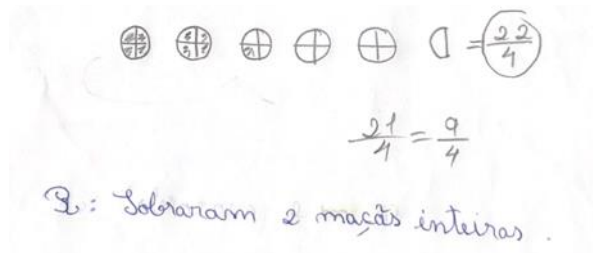 = 22/4
21/4 = 9/4
R: Sobraram 2 maçãs inteiras.